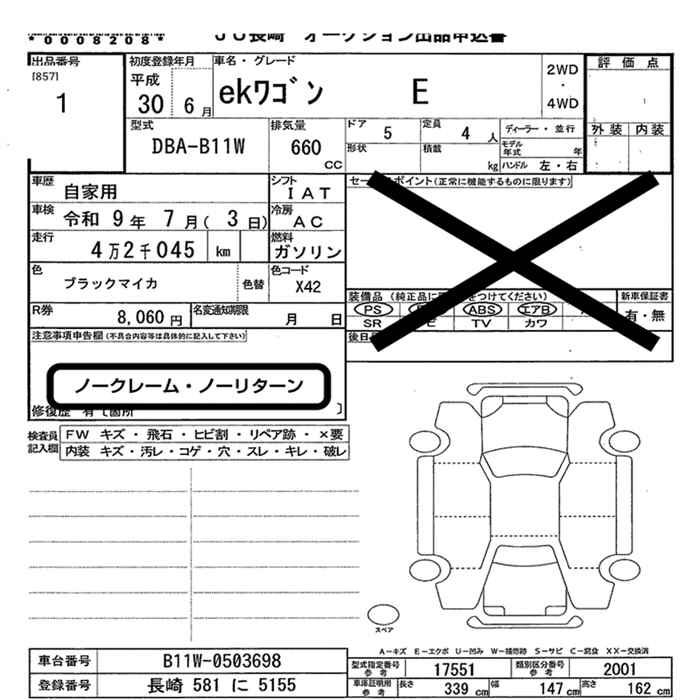 *0008208*
ＪＵ長崎　オークション出品申込書
出品番号 初度登録年月 車名・グレード 評価点
[857] 平成 2WD
1 30 6月 ekワゴン E ・
4WD
型式 排気量 ドア 5 定員 4人 ディーラー・並行 外装 内装
DBA-B11W 660 形状 積載 モデル年式 年
CC kg ハンドル 左・右
車歴 自家用 シフト IAT セールスポイント(正常に機能するものに限ります)
車検 令和 9年 7月( 3日) 冷房 AC
走行 4万2千045 km 燃料 ガソリン
色 ブラックマイカ 色替 色コード X42
装備品 (純正品に をつけてください) 新車保証書
R券 8,060円 名変通知期限 月 日 PS ABS エアB 有・無
SR TV カワ
注意事項申告欄(不具合内容等は具体的に記入して下さい) 後日
ノークレーム・ノーリターン
修復歴 有て箇所 ]
検査員 FW キズ・飛石・ヒビ割・リペア跡・×要
記入欄 内装 キズ・汚レ・コゲ・穴・スレ・キレ・破レ
スペア
A－キズ E－エクボ U－凹み W－補修跡 S－サビ C－腐食 XX－交換済
車台番号 B11W-0503698 型式指定番号参考 17551 類別区分番号参考 2001
登録番号 長崎 581 に 5155 車庫証明用参考 長さ 339 cm 幅 147 cm 高さ 162 cm